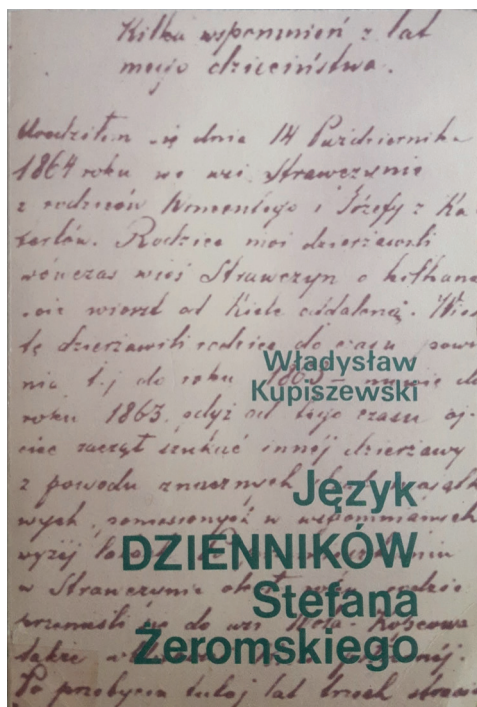 Kilka wspomnień z lat
mego dzieciństwa.
Urodziłem się dnia 14 Października
1864 roku we wsi Strawczynie
z rodziców Wincentego i Józefy z Ka
terlów. Rodzice moi dzierżawili
wówczas wieś Strawczyn o kilkana
wiorst od Kielc oddaloną. Wieś
tę dzierżawili rodzice do czasu pows
nia t.j do roku 1863
roku 1863, gdyż od tego czasu oj
ciec zaczął szukać innej dzierżawy
z powodu znacznych
wych, poniesionych w wspomnianych
wyżej
w Strawczynie
przenieśli się do wsi
także
Po przebyciu tutaj lat trzech
Władysław
Kupiszewski
Język
DZIENNIKÓW
Stefana
Żeromskiego